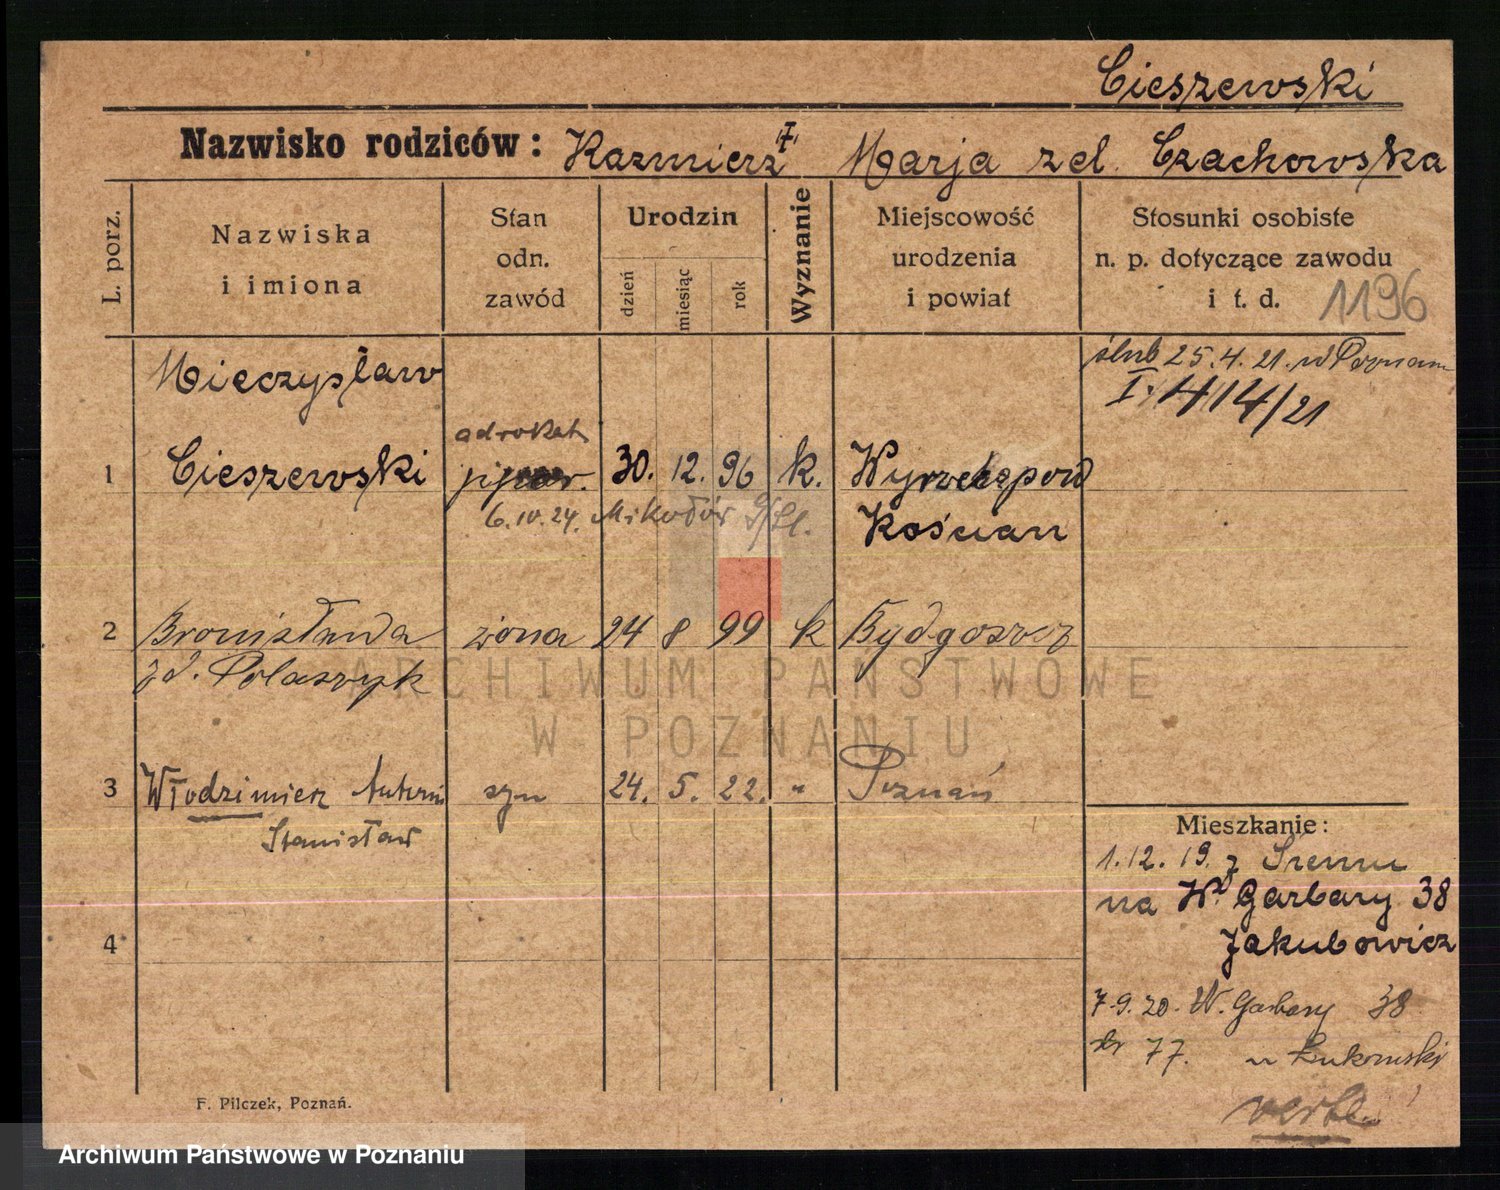 Cieszewski
Nazwisko rodziców: Kazmierz † Marja zel. Czachowska
L. porz.
Nazwiska i imiona
Stan odn. zawód
Urodzin
dzień
miesiąc
rok
Wyznanie
Miejscowość urodzenia i powiat
Stosunki osobiste n. p. dotyczące zawodu i t. d.
1196
ślub 25.4.21. w Poznaniu
I. 414/21
Mieczysław
adwokat
1 Cieszewski 30. 12. 96 k.
6.IV.24. Mikołów G/Śl.
Kościan
2 Bronisława żona 24 8 99 k Bydgoszcz
zd. Polaszyk
3 Włodzimierz Antoni syn 24. 5. 22. " Poznań
Stanisław
4
Mieszkanie:
1.12.19. z Śremu
na W. Garbary 38
Jakubowicz
7.9.20. W. Garbary 38
77. u Łukomski
verte
F. Pilczek, Poznań.
ARCHIWUM PAŃSTWOWE
W POZNANIU
Archiwum Państwowe w Poznaniu